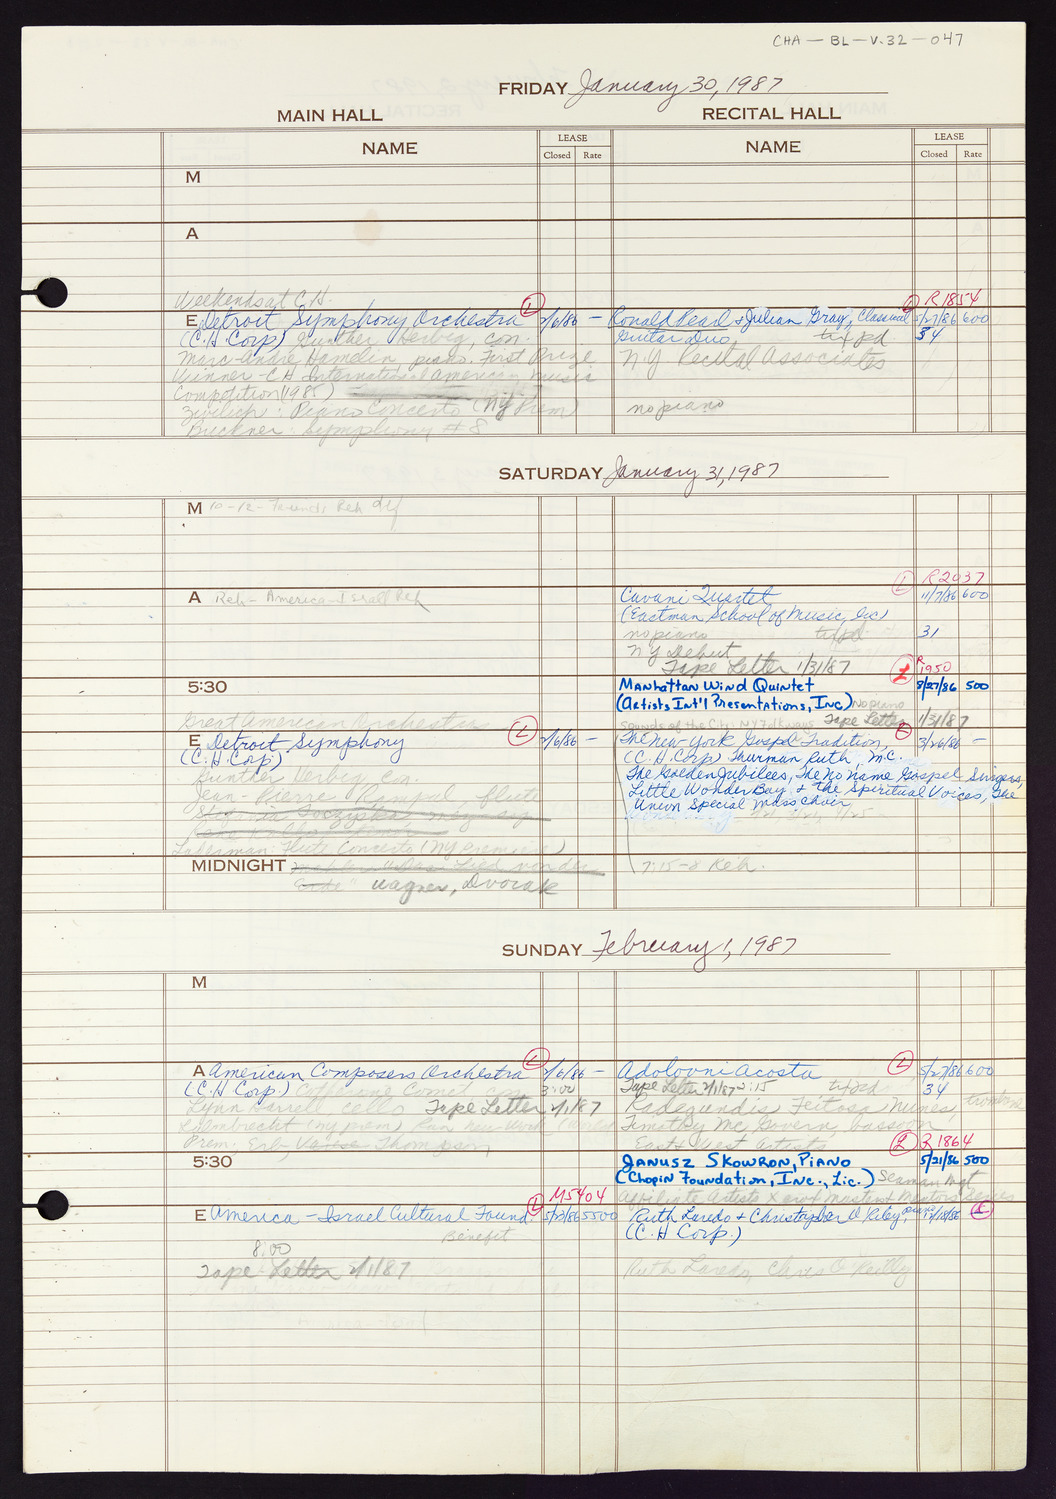 CHA — BL — V.32 — 047
FRIDAY January 30, 1987
MAIN HALL
RECITAL HALL
NAME
LEASE
Closed Rate
NAME
LEASE
Closed Rate
M
A
Weekends at C.H.
L
E Detroit Symphony Orchestra 2/6/86 —
(C.H. Corp) Gunther Herbig, con.
Marc-André Hamelin piano. First Prize
Winner - CH International American Music
Competition (1985)
Zwilich: Piano Concerto (NY Prem)
Bruckner: Symphony # 8
L R1854
Ronald Pearl + Julian Gray, Classical 5/27/86 600
Guitar Duo, tix pd 34
N.Y. Recital Associates
no piano
SATURDAY January 31, 1987
M 10-12- Reh
A Reh - American
L R2037
Cavani Quartet 11/7/86 600
(Eastman School of Music, Inc)
no piano 31
NY Debut
Tape Letter 1/31/87
L R1950
5:30
Manhattan Wind Quintet 8/27/86 500
(Artists Int'l Presentations, Inc) No piano
Tape Letter 1/31/87
Great American Orchestras
Sounds of the City: NY Folkways
E Detroit Symphony L 2/6/86 —
(C.H. Corp)
Gunther Herbig, Con.
Jean-Pierre Rampal flute
Laderman: Flute Concerto (NY Premiere)
The New York Gospel Tradition, L 3/26/86 —
(C.H. Corp) Thurman Ruth, M.C.
The Golden Jubilees, The No Name Gospel Singers,
Little Wonder Boy + the Spiritual Voices, The
Union Special Mass Choir
MIDNIGHT
Wagner, Dvorak
7:15-8 Reh.
SUNDAY February 1, 1987
M
A American Composers Orchestra L 2/6/86 —
(C.H. Corp) 3:00
Lynn Harrell cello Tape Letter 2/1/87
Prem.
Adolovni Acosta L 5/27/86 600
Tape Letter 2/1/87 2:15 tix pd 34
Radegundis Feitosa Nunes, trombone
Timothy McGovern, bassoon
East & West Artists
L R1864
5:30
Janusz Skowron, Piano 5/21/86 500
(Chopin Foundation, Inc., Lic.) Seaman Mgt
Affiliate Artists Xerox
L M5404
E America - Israel Cultural Found. 5/23/86 5500
Benefit
8:00
Tape Letter 2/1/87
Ruth Laredo + Christopher O'Riley, 12/18/86 L
(C.H. Corp.)
Ruth Laredo, Chris O'Reilly